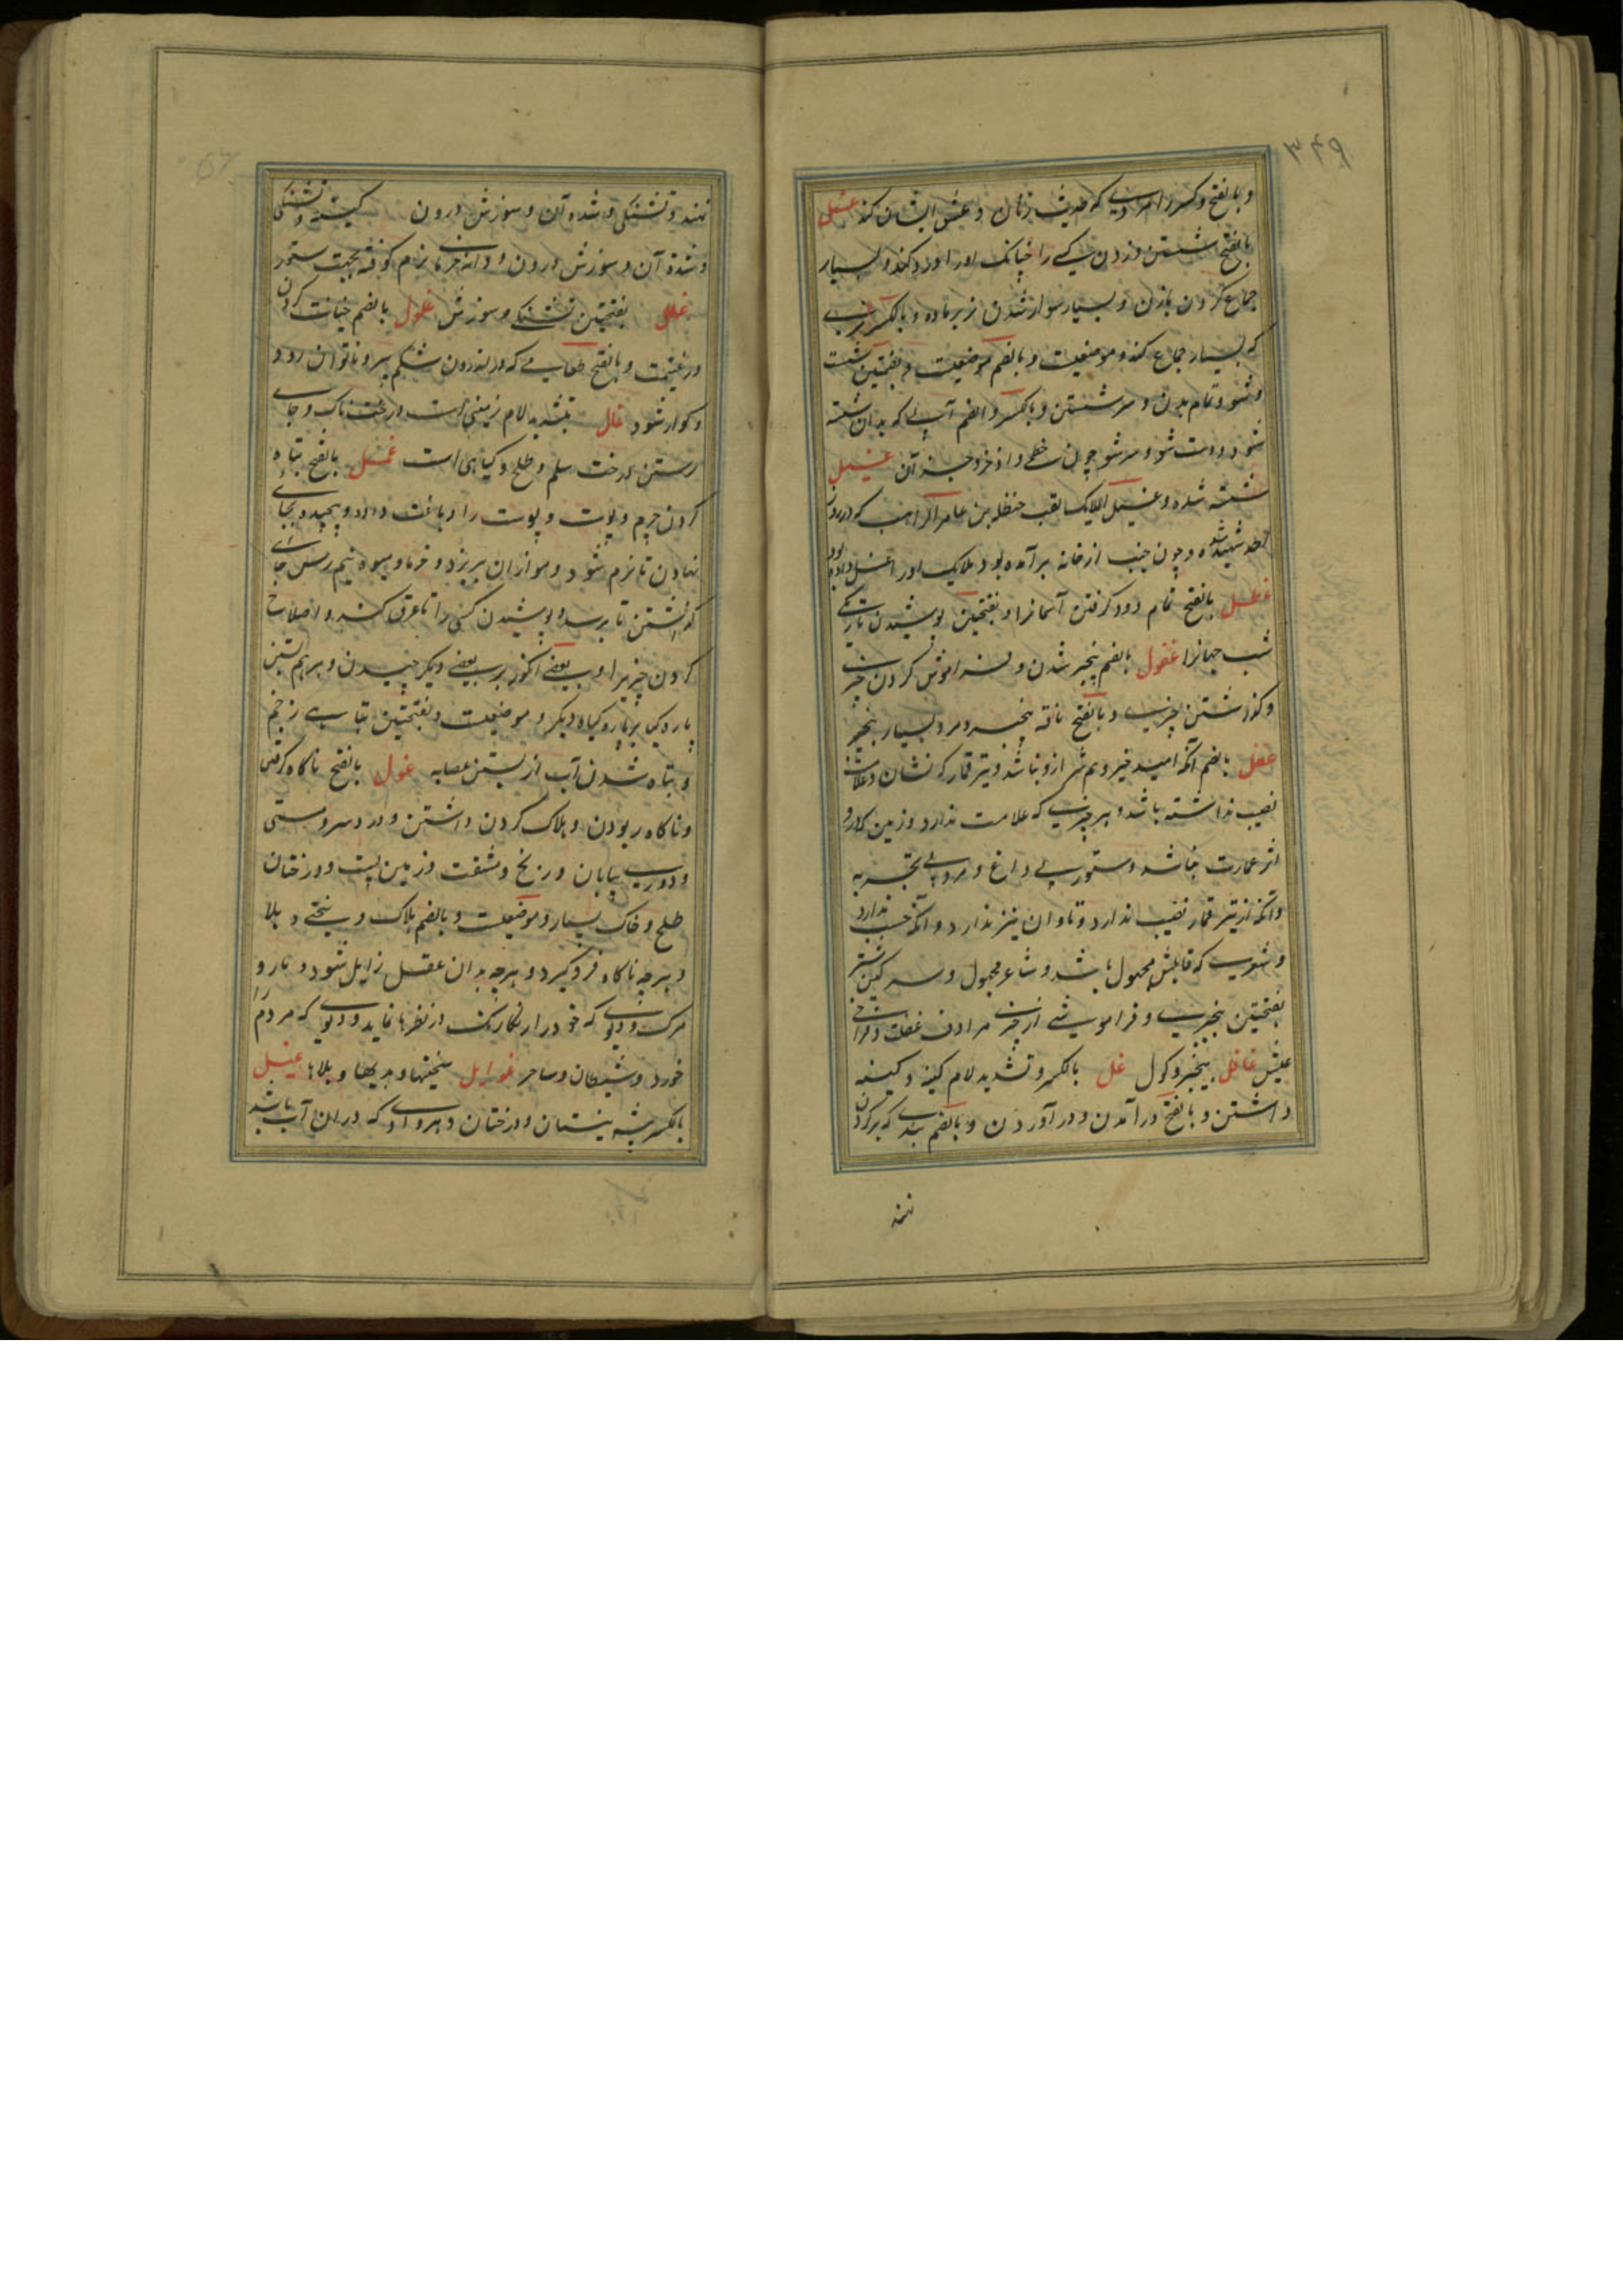 ۳۴۹
و بالفتح و کسر را مردیکه حدیث زنان و عشق ایشان کند غسل
بالفتح شستن و زدن کسی را چنانکه اورا درد کند و بسیار
جماع کردن بازن و بسیار سوار شدن نر بر ماده و بالکسر نری
که بسیار جماع کند و موضعیست و بالضم موضعیست و بضمتین شست
و شو و تمام بدن و سر شستن و بالکسر و الضم آبی که بدان شسته
شود و دست شو و سر شو چون خطمی و اذخر و جز آن غسیل
شسته شده و غسیل الملایک لقب حنظله بن عامر الراهب که در روز
احد شهید شده و چون جنب از خانه برآمده بود ملایک اورا غسل داده بود
غطل بالفتح تمام دود گرفتن آسمانرا و بفتحتین پوشیدن تاریکی
شب جهانرا غفول بالضم بیخبر شدن و فراموش کردن چیزی
و گذاشتن چیزی و بالفتح ناقه بیخبر و مرد بسیار بیخبر
غفل بالضم آنکه امید خیر و بیم شر ازو نباشد و تیر قمار که نشان و علامت
نصیب نداشته باشد و هر چیزی که علامت ندارد و زمین که درو
اثر عمارت نباشد و ستور بی داغ و مرد بی تجربه
و آنکه از تیر قمار نصیب ندارد و تاوان نیز ندارد و آنکه حسب ندارد
و شعری که قایلش مجهول باشد و شاعر مجهول و سرکین شتر
بفتحتین بیخبری و فراموشی از چیزی مرادف غفلت و فراخی
عیش غافل بیخبر و کول غل بالکسر و تشدید لام کینه و کینه
داشتن و بالفتح درآمدن و درآوردن و بالضم بندی که بر گردن
نهند
نهند و تشنگی و شده آن و سوزش درون کینه و تشنگی
و شدة آن و سوزش درون و دانه خرما نرم کوفته بجهت ستور
غلل بفتحتین تشنگی و سوزش غلول بالضم خیانت کردن
در غنیمت و بالفتح طعامی که در اندرون شکم پیر و ناتوان رود
و کوار شود غال بتشدید لام زمینی است درخت ناک و جای
رستن درخت سلم و طلح و کیاهی است غمل بالفتح تباه
کردن چرم و پوست و پوست را دباغت داده و پیچیده بجای
نهادن تا نرم شود و مو ازان بریزد و خرما و میوه نیم رس جای
گذاشتن تا برسد و پوشیدن کسی را تا عرق کند و اصلاح
کردن چیزیرا و بعضی انکور بر بعضی دیگر چیدن و برهم نشستن
پاره کیاه بر پاره کیاه دیگر و موضعیست و بفتحتین تباهی زخم
و تباه شدن آب از بستن عصابه غول بالفتح ناکاه گرفتن
و ناکاه ربودن و هلاک کردن داشتن و درد سر و مستی
و دوری بیابان و رنج و مشقت و زمین پست و درختان
طلح و خاک بسیار و موضعیست و بالضم هلاک و سختی و بلا
و هر چه ناکاه فرو گیرد و هرچه بدان عقل زایل شود و مار و
مرگ و دیوی که خود را رنگارنگ در نظرها نماید و دیوی که مردم
خورد و شیطان و ساحر غوایل سختیها و بدیها و بلاها غیل
بالکسر بیشه نیستان و درختان و هر وادی که دران آب باشد